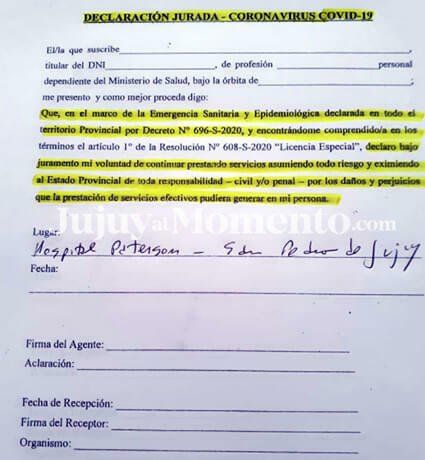 DECLARACIÓN JURADA - CORONAVIRUS COVID-19
El/la que suscribe
titular del DNI , de profesión personal
dependiente del Ministerio de Salud, bajo la órbita de
me presento y como mejor proceda digo:
Que, en el marco de la Emergencia Sanitaria y Epidemiológica declarada en todo el
territorio Provincial por Decreto Nº 696-S-2020, y encontrándome comprendido/a en los
términos el artículo 1º de la Resolución Nº 608-S-2020 "Licencia Especial", declaro bajo
juramento mi voluntad de continuar prestando servicios asumiendo todo riesgo y eximiendo
al Estado Provincial de toda responsabilidad – civil y/o penal – por los daños y perjuicios
que la prestación de servicios efectivos pudiera generar en mi persona.
JujuyalMomento.com
Lugar:
Hospital Paterson - San Pedro de Jujuy
Fecha:
Firma del Agente:
Aclaración:
Fecha de Recepción:
Firma del Receptor:
Organismo: